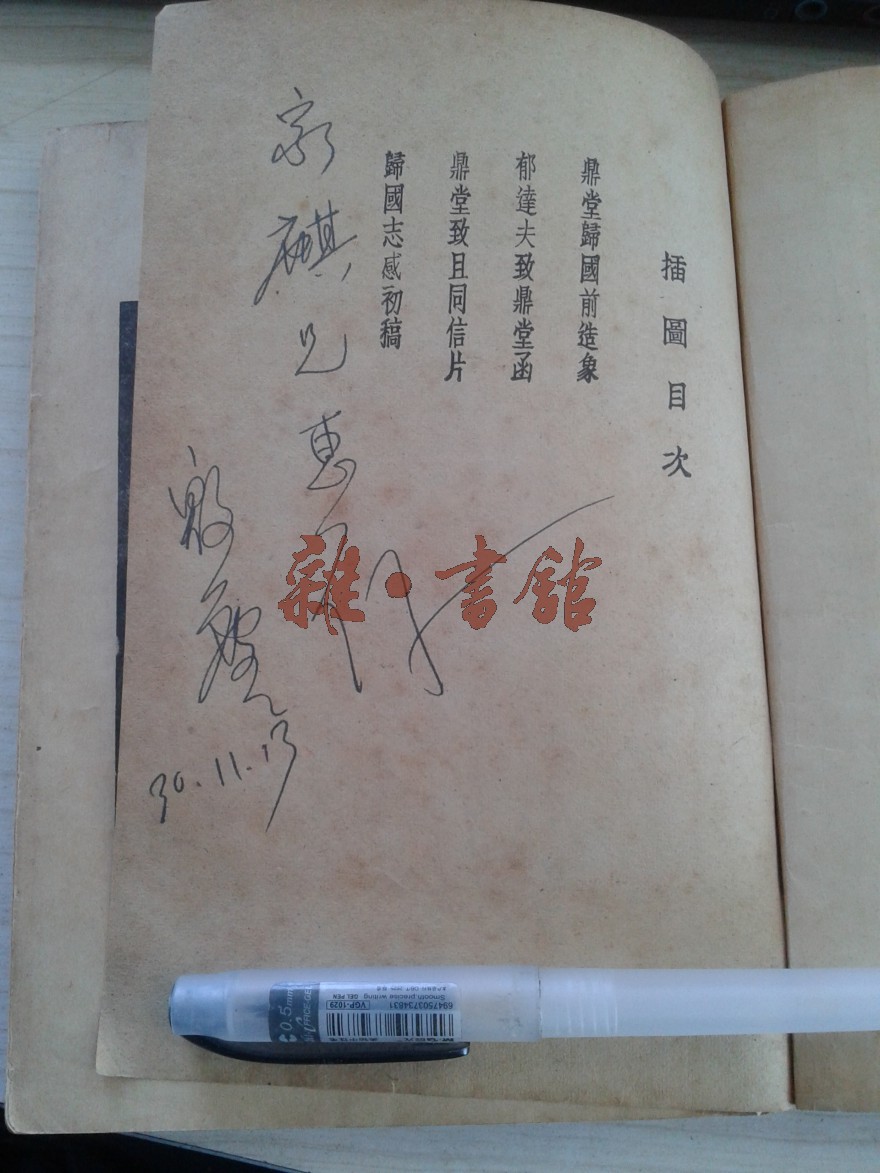 插圖目次
鼎堂歸國前造象
郁達夫致鼎堂函
鼎堂致且同信片
歸國志感初稿
家麒兄惠存
殷塵
30.11.13
雜·書館
0.5mm
OFFICE-GEL
VGP-1029
GEL PEN
Smooth precise writing
6947503734831